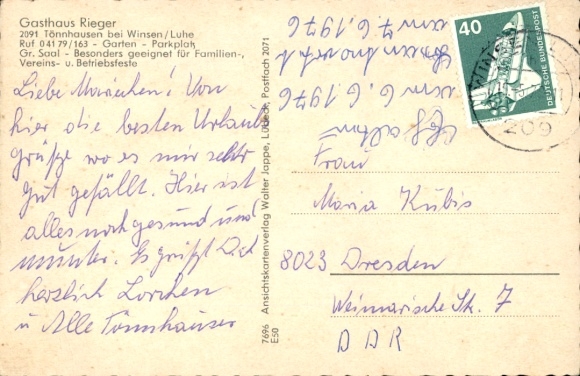 Gasthaus Rieger
2091 Tönnhausen bei Winsen/Luhe
Ruf 04179/163 - Garten - Parkplatz
Gr. Saal - Besonders geeignet für Familien-,
Vereins- u. Betriebsfeste
Liebe Mariechen! Von
hier die besten Urlaubs
grüße wo es mir sehr
gut gefällt. Hier ist
alles noch gesund und
munter. Es grüßt Dich
herzlich Lorchen
u Alle Tönnhauser
7696 Ansichtskartenverlag Walter Joppe, Lübeck, Postfach 2071
E50
am 7.6.1976
am 6.6.1976
40
DEUTSCHE BUNDESPOST
209
Frau
Maria Kubis
8023 Dresden
Weimarische Str. 7
DDR